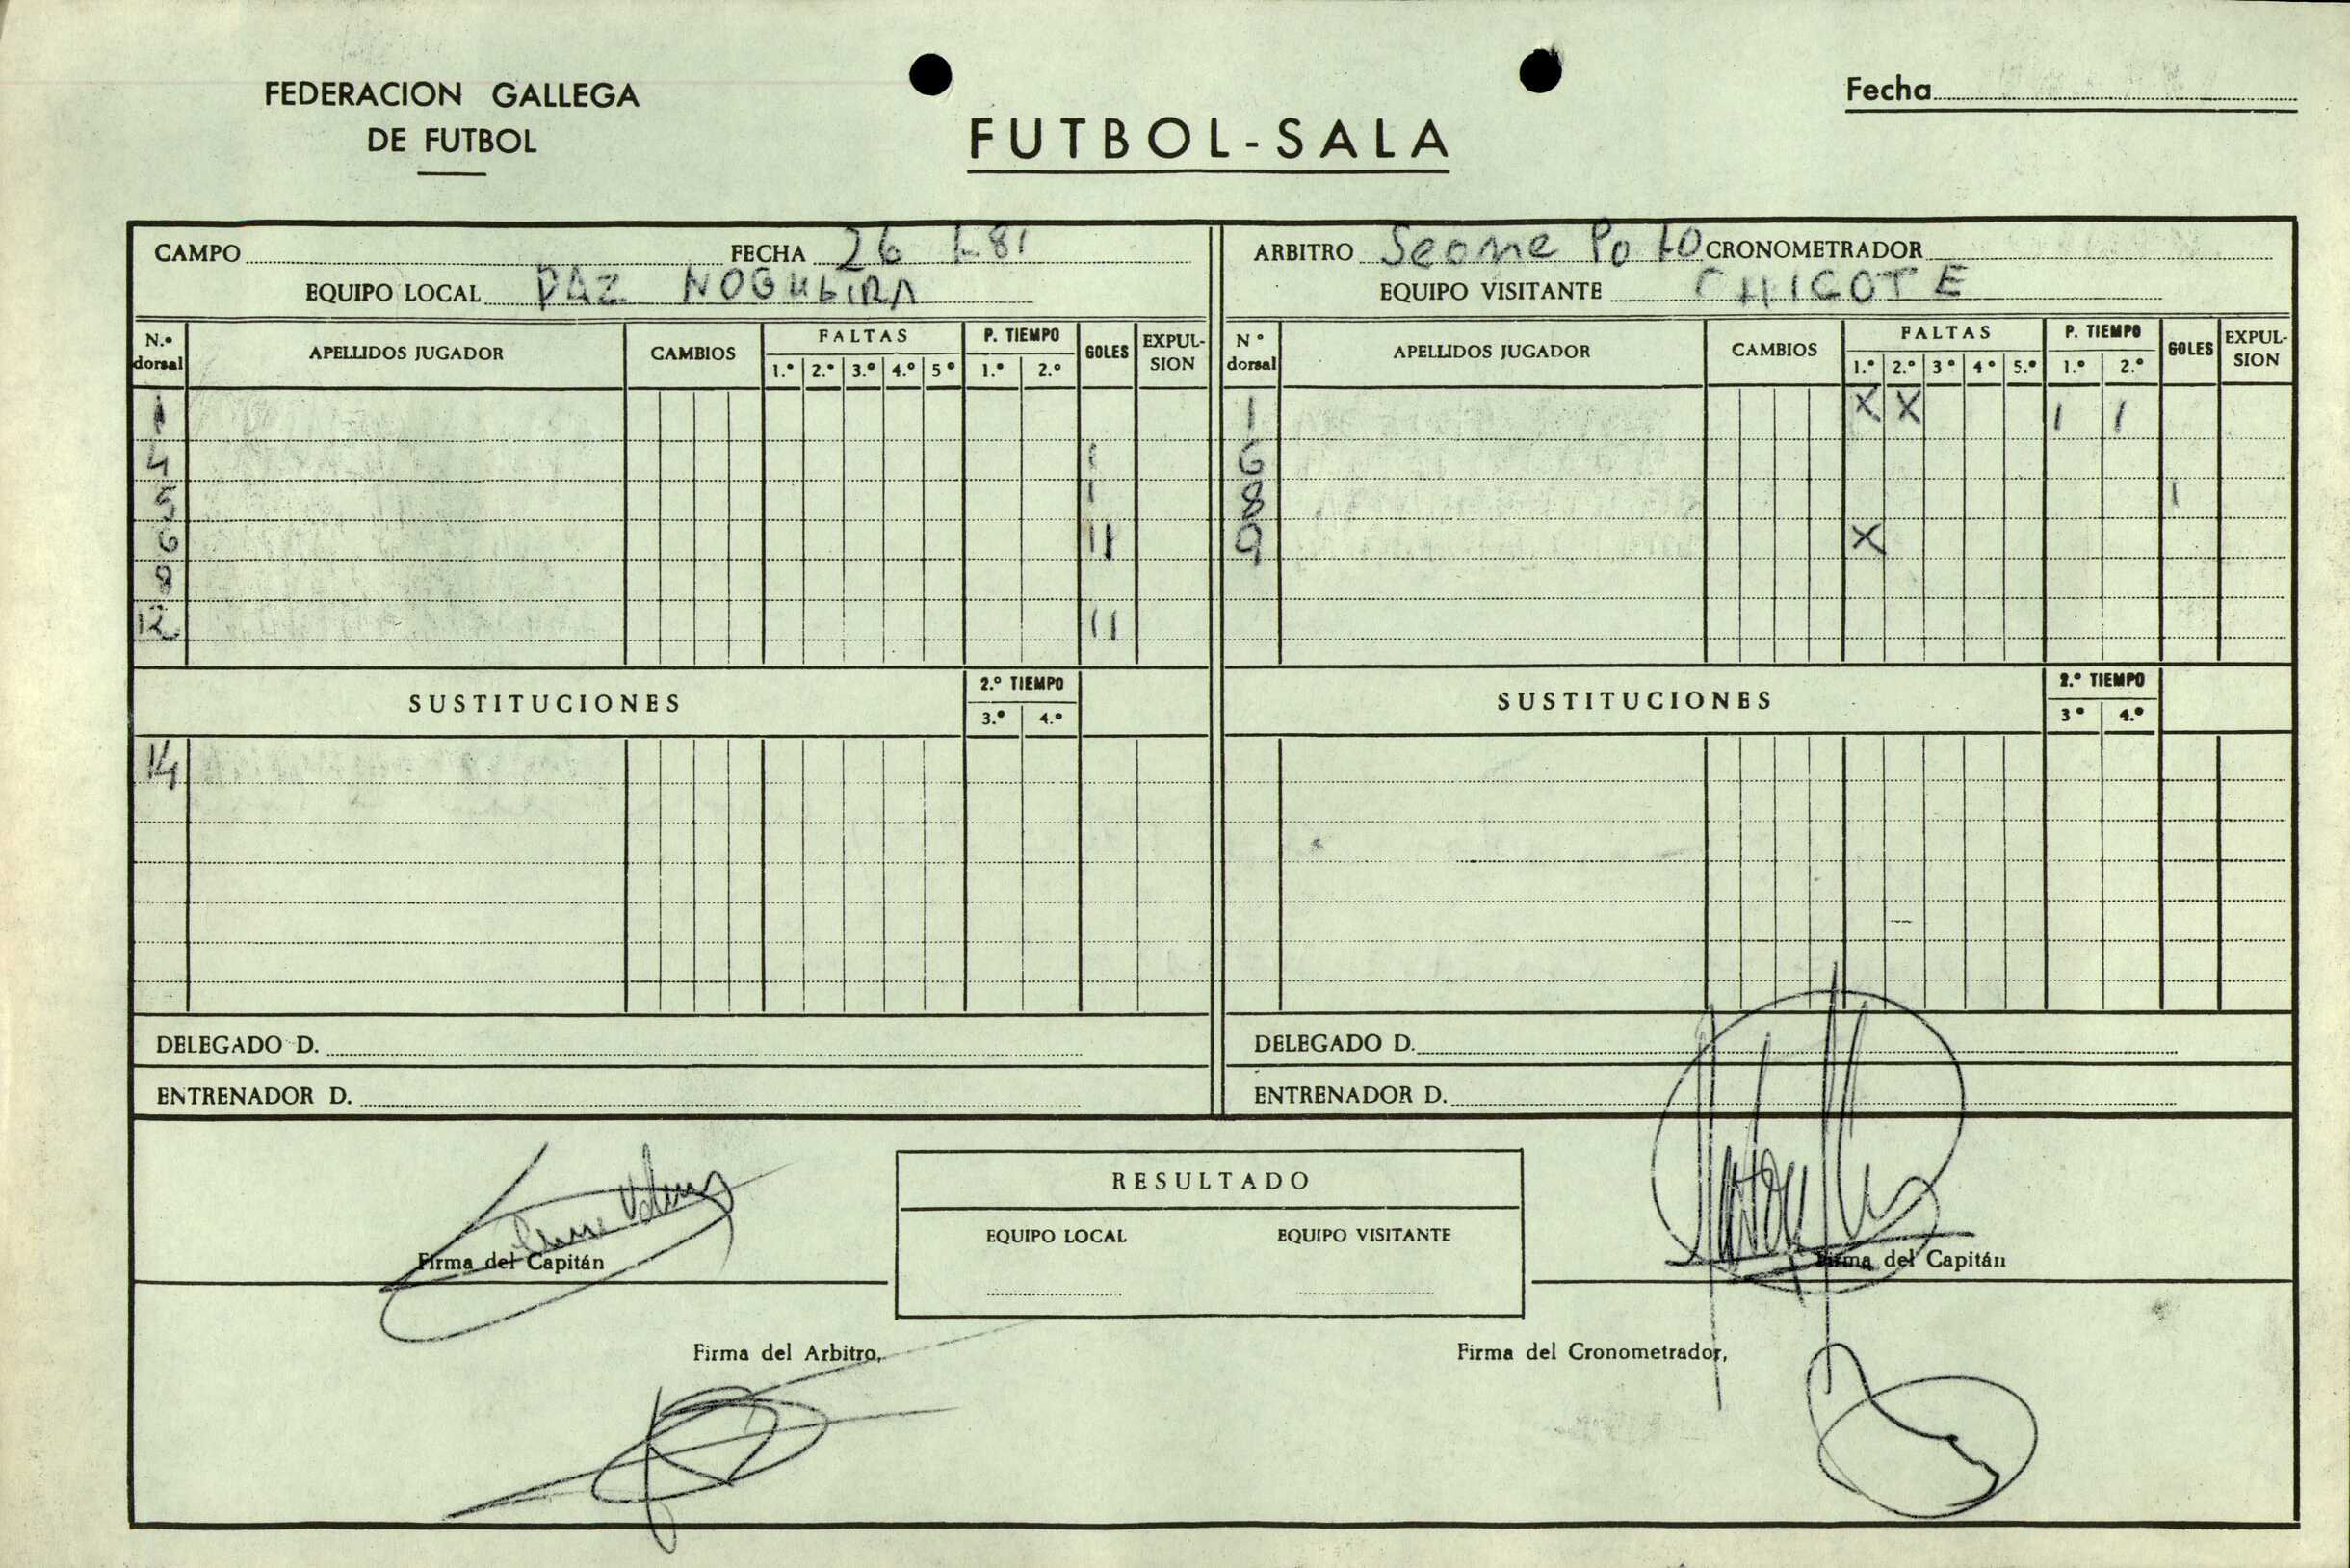 FEDERACION GALLEGA
DE FUTBOL
FUTBOL-SALA
Fecha
CAMPO FECHA 26 1-81
EQUIPO LOCAL PAZ NOGUEIRA
ARBITRO Seone Poto CRONOMETRADOR
EQUIPO VISITANTE CHICOTE
N.º dorsal APELLIDOS JUGADOR CAMBIOS FALTAS 1.º 2.º 3.º 4.º 5º P. TIEMPO 1.º 2.º GOLES EXPUL-SION
1
4 1
5 1
6 11
8
12 11
N º dorsal APELLIDOS JUGADOR CAMBIOS FALTAS 1.º 2.º 3º 4º 5.º P. TIEMPO 1.º 2.º GOLES EXPUL-SION
1 X X 1 1
6
8 1
9 X
SUSTITUCIONES 2.º TIEMPO 3.º 4.º
14
SUSTITUCIONES 2.º TIEMPO 3º 4.º
DELEGADO D.
ENTRENADOR D.
DELEGADO D.
ENTRENADOR D.
Firma del Capitán
RESULTADO
EQUIPO LOCAL EQUIPO VISITANTE
Firma del Capitán
Firma del Arbitro,
Firma del Cronometrador,